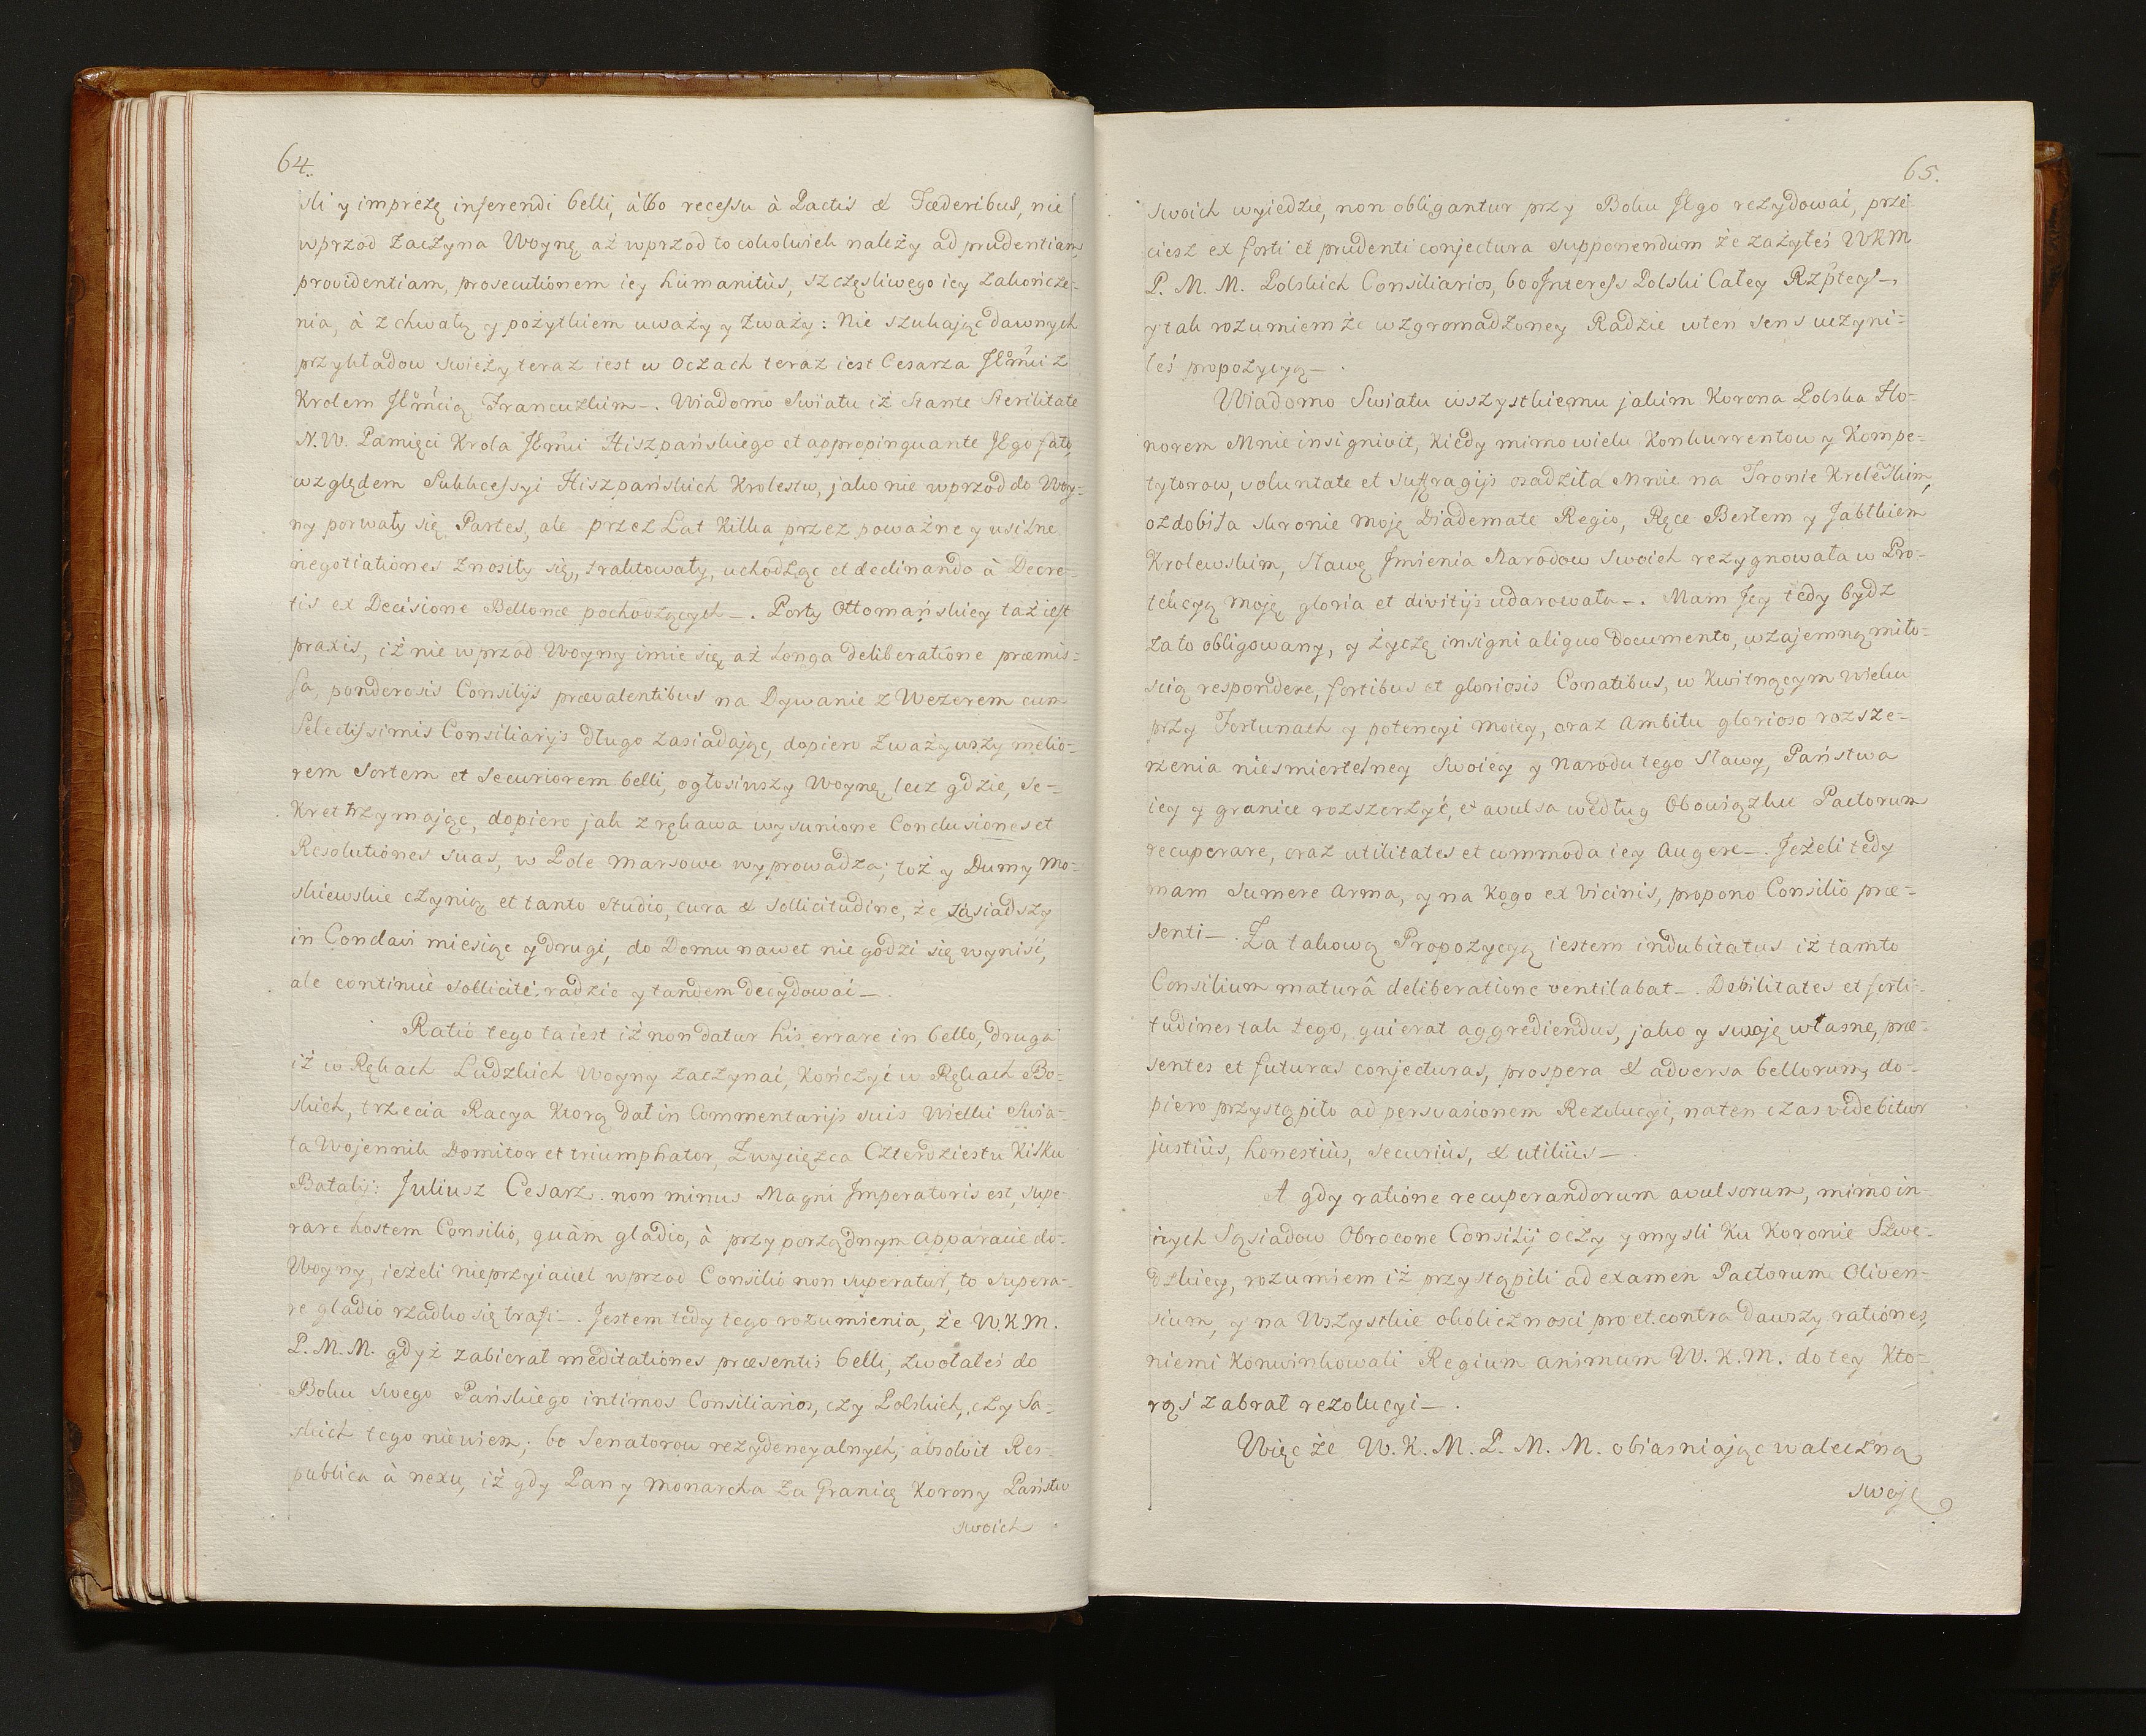 64.
sli y imprezę inferendi belli, álbo recessu à Pactis & Fæderibus, nie
wprzod zaczyna Woynę, aż wprzod to cokolwiek należy ad prudentiam,
providentiam, prosecutionem iey humanitùs, szczęsliwego iey zakończe-
nia, à z chwałą y pożytkiem uważy y zważy: Nie szukając dawnych
przykładow swieży teraz iest w Oczach teraz iest Cesarza JEmći z
Krolem JEmćią Francuzkim —. Wiadomo Swiatu iż stante sterilitate
N. W. Pamięci Krola JEmći Hiszpańskiego et appropinquante JEgo fato,
względem Sukkcessyi Hiszpańskich Krolestw, jako nie wprzod do Woy-
ny porwały się Partes, ale przez Lat Kilka przez poważne y usilne
negotiationes znosiły się, traktowały, uchodząc et declinando à Decre-
tis ex Decisione Bellonæ pochodzących —. Porty Ottomańskiey taż iest
praxis, iż nie wprzod Woyny imie się, aż longa deliberatione præmis-
sa, ponderosis Consilijs prævalentibus na Dywanie z Wezerem cum
Selectissimis Consiliarijs długo zasiadając, dopiero zważywszy melio-
rem sortem et securiorem belli, ogłosiwszy Woynę, lecz gdzie, se-
kret trzymając, dopiero jak z rękawa wysunione Conclusiones et
Resolutiones suas, w Pole Marsowe wyprowadza; toż y Dumy Mo-
skiewskie czynią et tanto studio, cura & sollicitudine, że zasiadszy
in Conclavi miesiąc y drugi, do Domu nawet nie godzi się wyniść,
ale continuè sollicitè, radzić y tandem decydować —.
Ratio tego ta iest iż non datur his errare in bello, druga
iż w Rękach Ludzkich Woyny zaczynać, kończyć w Rękach Bo-
skich, trzecia Racya Ktorą dał in Commentarijs suis Wielki Swia-
ta Wojennik Domitor et triumphator, Zwycięzca Czterdziestu Kilku
Batalij: Juliusz Cesarz. non minus Magni Imperatoris est, supe-
rare hostem Consilio, quàm gladio, à przy porządnym apparacie do-
Woyny, ieżeli nieprzyiaciel wprzod Consilio non superatur, to supera-
re gladio rzadko się trafi —. Jestem tedy tego rozumienia, że W. K. M.
P. M. M. gdyż zabierał meditationes præsentis belli, zwołałeś do
Boku swego Pańskiego intimos Consiliarios, czy Polskich, czy Sa-
skich tego niewiem; bo Senatorow rezydencyalnych, absolvit Res-
publica à nexu, iż gdy Pan y Monarcha za Granicę Korony Państw
swoich
65.
swoich wyiedzie, non obligantur przy Boku JEgo rezydować, prze-
ciesz ex forti et prudenti conjectura supponendum że zażyłeś WKM
P. M. M. Polskich Consiliarios, bo Interess Polski Całey Rzptey —,
y tak rozumiem że w zgromadzoney Radzie w ten sens uczyni-
łeś propozycyą —.
Wiadomo Swiatu wszystkiemu jakim Korona Polska Ho-
norem Mnie insignivit, Kiedy mimo wielu Konkurrentow y Kompe-
tytorow, voluntate et suffragijs osadziła Mnie na Tronie Krolewskim,
ozdobiła skronie moję Diademate Regio, Ręce Berłem y Jabłkiem
Krolewskim, sławę Imienia Narodow swoich rezygnowała w Pro-
tekcyą moję gloria et divitijs udarowała —. Mam Jey tedy bydz
za to obligowany, y życzę insigni aliquo Documento, wzajemną miło-
scią respondere, fortibus et gloriosis Conatibus, w Kwitnącym wieku
przy Fortunach y potencyi moiey, oraz ambitu glorioso rozsze-
rzenia niesmiertelney swoiey y Narodu tego sławy, Państwa
iey y granice rozszerzyć, et avulsa według Obowiązku Pactorum
recuperare, oraz utilitates et commoda iey augere —. Jeżeli tedy
mam sumere arma, y na Kogo ex Vicinis, propono Consilio præ-
senti —. Za takową Propozycyą iestem indubitatus iż tamto
Consilium maturâ deliberatione ventilabat —. Debilitates et forti-
tudines tak tego, qui erat aggrediendus, jako y swoję własne, præ-
sentes et futuras conjecturas, prospera & adversa bellorum, do-
piero przystąpiło ad persvasionem Rezolucyi, na ten czas videbitur
justiùs, honestiùs, securiùs, & utiliùs —.
A gdy ratione recuperandorum avulsorum, mimo in-
nych Sąsiadow Obrocone Consilij oczy y mysli Ku Koronie Szwe-
dzkiey, rozumiem iż przystąpili ad examen Pactorum Oliven-
sium, y na Wszystkie okoliczności pro et contra dawszy rationes,
niemi Konwinkowali Regium animum W. K. M. do tey Kto-
rąś zabrał rezolucyi —.
Więc że W. K. M. P. M. M. obiasniając waleczną
swoję